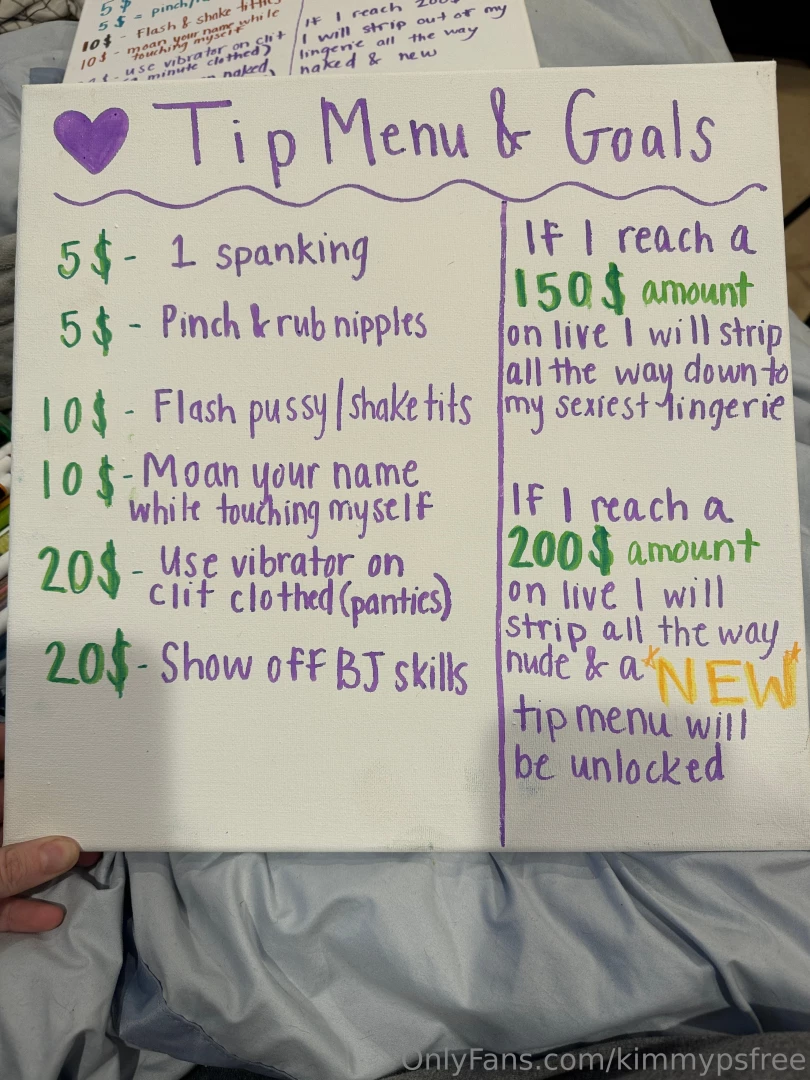 5 $
5 $ = pinch/
10 $ - Flash & shake
10 $ - moan your name while
touching myself
use vibrator on clit
minute clothed)
naked,
If I reach
I will strip out of my
lingerie all the way
naked & new
Tip Menu & Goals
5 $ - 1 spanking
5 $ - Pinch & rub nipples
10 $ - Flash pussy/shake tits
10 $ - Moan your name
while touching myself
20 $ - Use vibrator on
clit clothed (panties)
20 $ - Show off BJ skills
If I reach a
150 $ amount
on live I will strip
all the way down to
my sexiest lingerie
If I reach a
200 $ amount
on live I will
strip all the way
nude & a *NEW*
tip menu will
be unlocked
OnlyFans.com/kimmypsfree